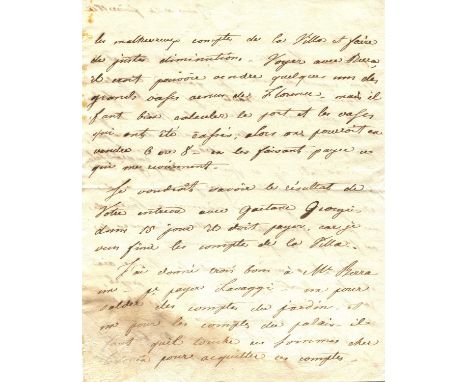 les malheureux compte de la Villa et faire
de justes diminutions. Voyez avec Berra
il croit pouvoir vendre quelques uns des
grands vases venus de Florence, mais il
faut bien calculer le port et les vases
qui ont été cassés, alors on pouvoit en
vendre 6 ou 8. en les faisant payer ce
qui me reviennent.
Je voudrois savoir le résultat de
Votre entrevue avec Gaetano Giorgi
dans 15 jours il doit payer, car je
veux finir les compte de la Villa.
J'ai donné trois bons à Mr Berra
un pr payer Lavaggi un pour
solder des comptes du jardin. et
un pour les comptes du palais. il
faut qu'il touche ces sommes chez
pour acquitter ces comptes.